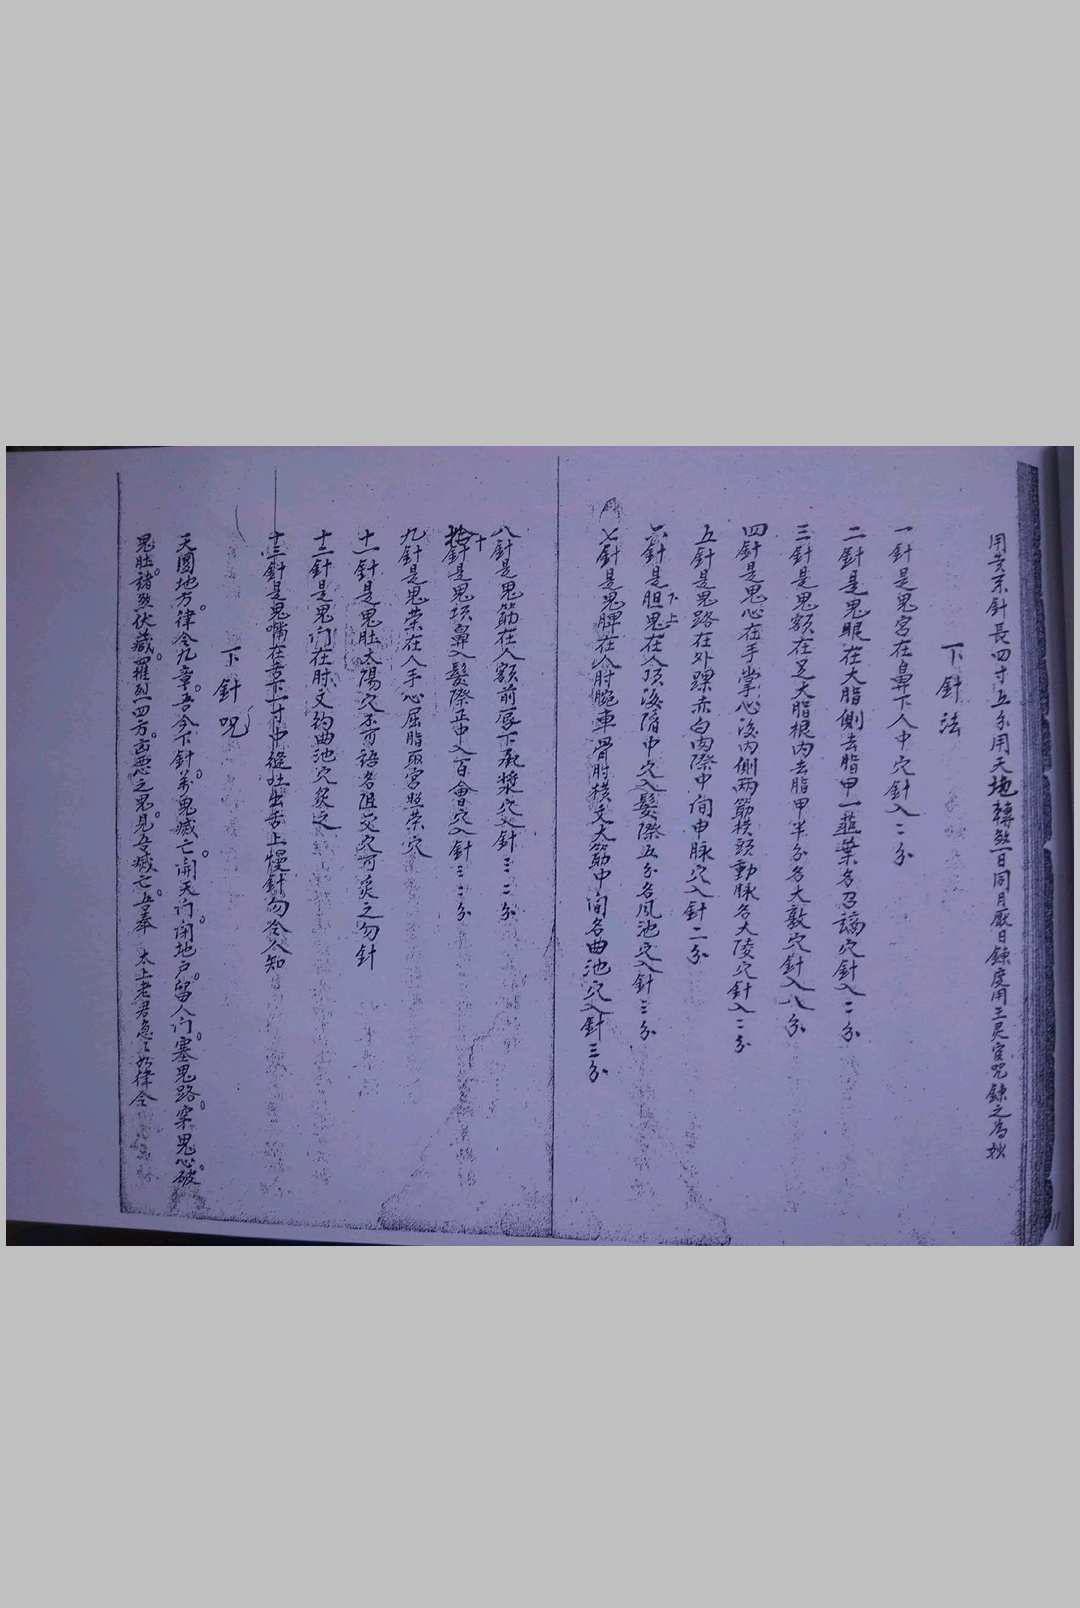 用炁系針長四寸五分用天地轉煞日同月厭日鍊度用王灵官咒鍊之為妙
下針法
一針是鬼宮在鼻下人中穴針入二分
二針是鬼眼在大脂側去脂甲一薤葉名召謫穴針入二分
三針是鬼額在足大脂根內去脂甲半分名大敦穴針入八分
四針是鬼心在手掌心後內側兩筋横頭動脉名大陵穴針入二分
五針是鬼路在外踝赤白肉際中间申脉穴入針二分
六針是胆鬼在人頂後隂中穴入髮際五分名風池穴入針三分
下上
七針是鬼脾在人肘腕車骨肘横文大筋中间名曲池穴入針三分
八針是鬼筋在人額前唇下承漿穴入針三二分
十針是鬼項鼻入髮際正中入百會穴入針三二分
九針是鬼荣在人手心屈脂取宮照荣穴
十一針是鬼肚太陽穴不可語名阻交穴可灸之勿針
十二針是鬼门在肘文約曲池穴灸之
十三針是鬼嘴在舌下一寸中縫吐出舌上慢針勿令人知
下針咒
天圓地方。律令九章。吾今下針。萬鬼滅亡。開天门。闭地户。留人门。塞鬼路。穿鬼心。破
鬼肚。諸煞伏藏。羅烈四方。凶惡之鬼。見吾滅亡。吾奉 太上老君急々如律令
11